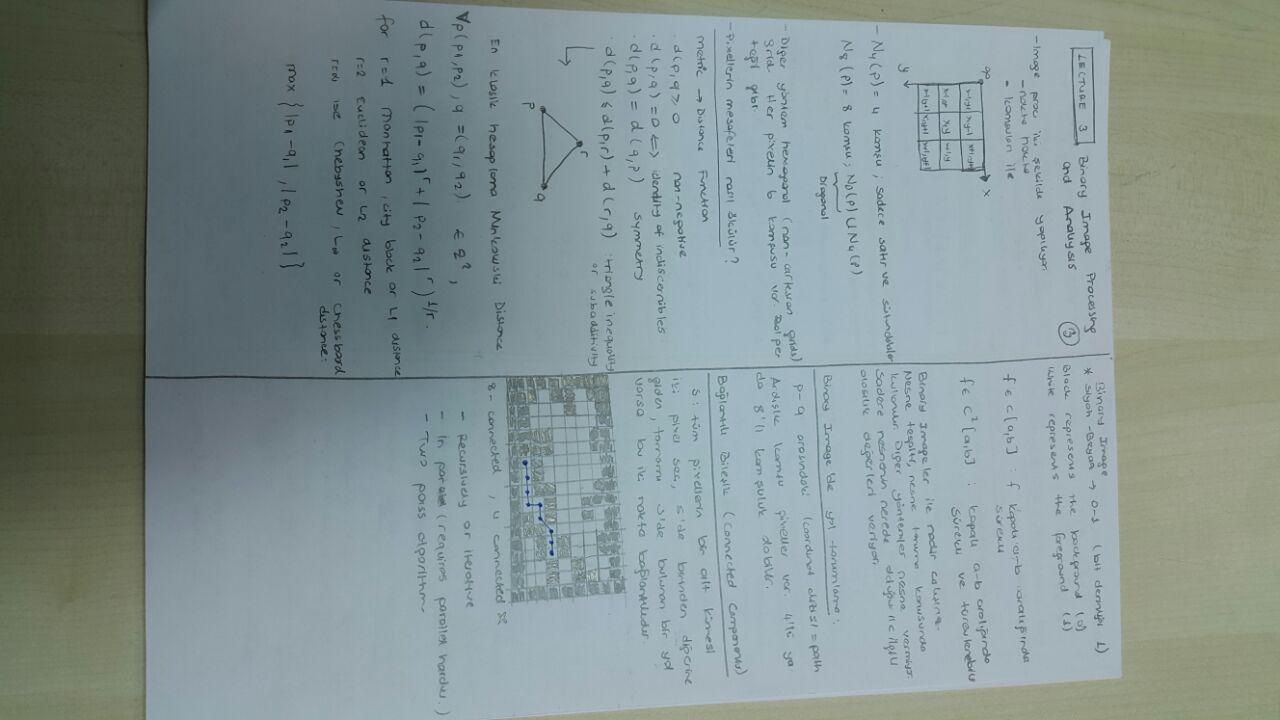 LECTURE 3 Binary Image Processing
and Analysis
3
- Image proc iki şekilde yapılıyor
- nokta nokta
- komsuları ile
x
x-1,y-1 x,y-1 x+1,y-1
x-1,y x,y x+1,y
x-1,y+1 x,y+1 x+1,y+1
y
- N4(p) = 4 komsu ; sadece satır ve sütundakiler
N8(p) = 8 komsu ; ND(p) U N4(p)
Diagonal
- Diğer yöntem hexagonal (non-cartesian grids)
grid. Her pixelin 6 komşusu var.
gibi.
- Pixellerin mesafeleri nasıl ölçülür ?
metric → Distance Function
. d(p,q) ≥ 0 non-negative
. d(p,q) = 0 <=> identity of indiscernibles
. d(p,q) = d(q,p) symmetry
. d(p,q) ≤ d(p,r) + d(r,q) : triangle inequality
or subadditivity
r
p q
En klasik hesaplama Minkowski Distance
∀p(p1,p2), q = (q1,q2) ∈ Z²,
d(p,q) = ( |p1-q1|^r + | p2-q2|^r )^1/r .
for r=1 Manhattan, city block or L1 distance
r=2 Euclidean or L2 distance
r=∞ ise Chebyshev, L∞ or chessboard
distance:
max { |p1-q1| , |p2-q2| }
Binary Image
* Siyah-Beyaz → 0-1 (bit derinliği 1)
Black represents the background (0)
White represents the foreground (1)
f ∈ C[a,b] : f kapalı a-b aralığında
sürekli
f ∈ C¹[a,b] : kapalı a-b aralığında
sürekli ve türevlenebilir
Binary Image ler ile nadir çalışılır.
Nesne tespiti, nesne tanıma konusunda
kullanılır. Diğer yöntemler nesne vermiyor.
Sadece nesnenin nerede olduğu ile ilgili
olasılık değerleri veriyor.
Binary Image'de yol tanımlama:
p-q arasındaki (coordinat dizisi) = path
Ardışık komsu pixeller var. 4'lü ya
da 8'li komşuluk olabilir.
Bağlantılı Bileşik (Connected Components)
S: tüm pixellerin bir alt kümesi
iki pixel seç, S'de birinden diğerine
giden, tamamı S'de bulunan bir yol
varsa bu iki nokta bağlantılıdır.
8-connected , 4 connected
- Recursively or iterative
- In parallel (requires parallel hardw.)
- Two pass algorithm